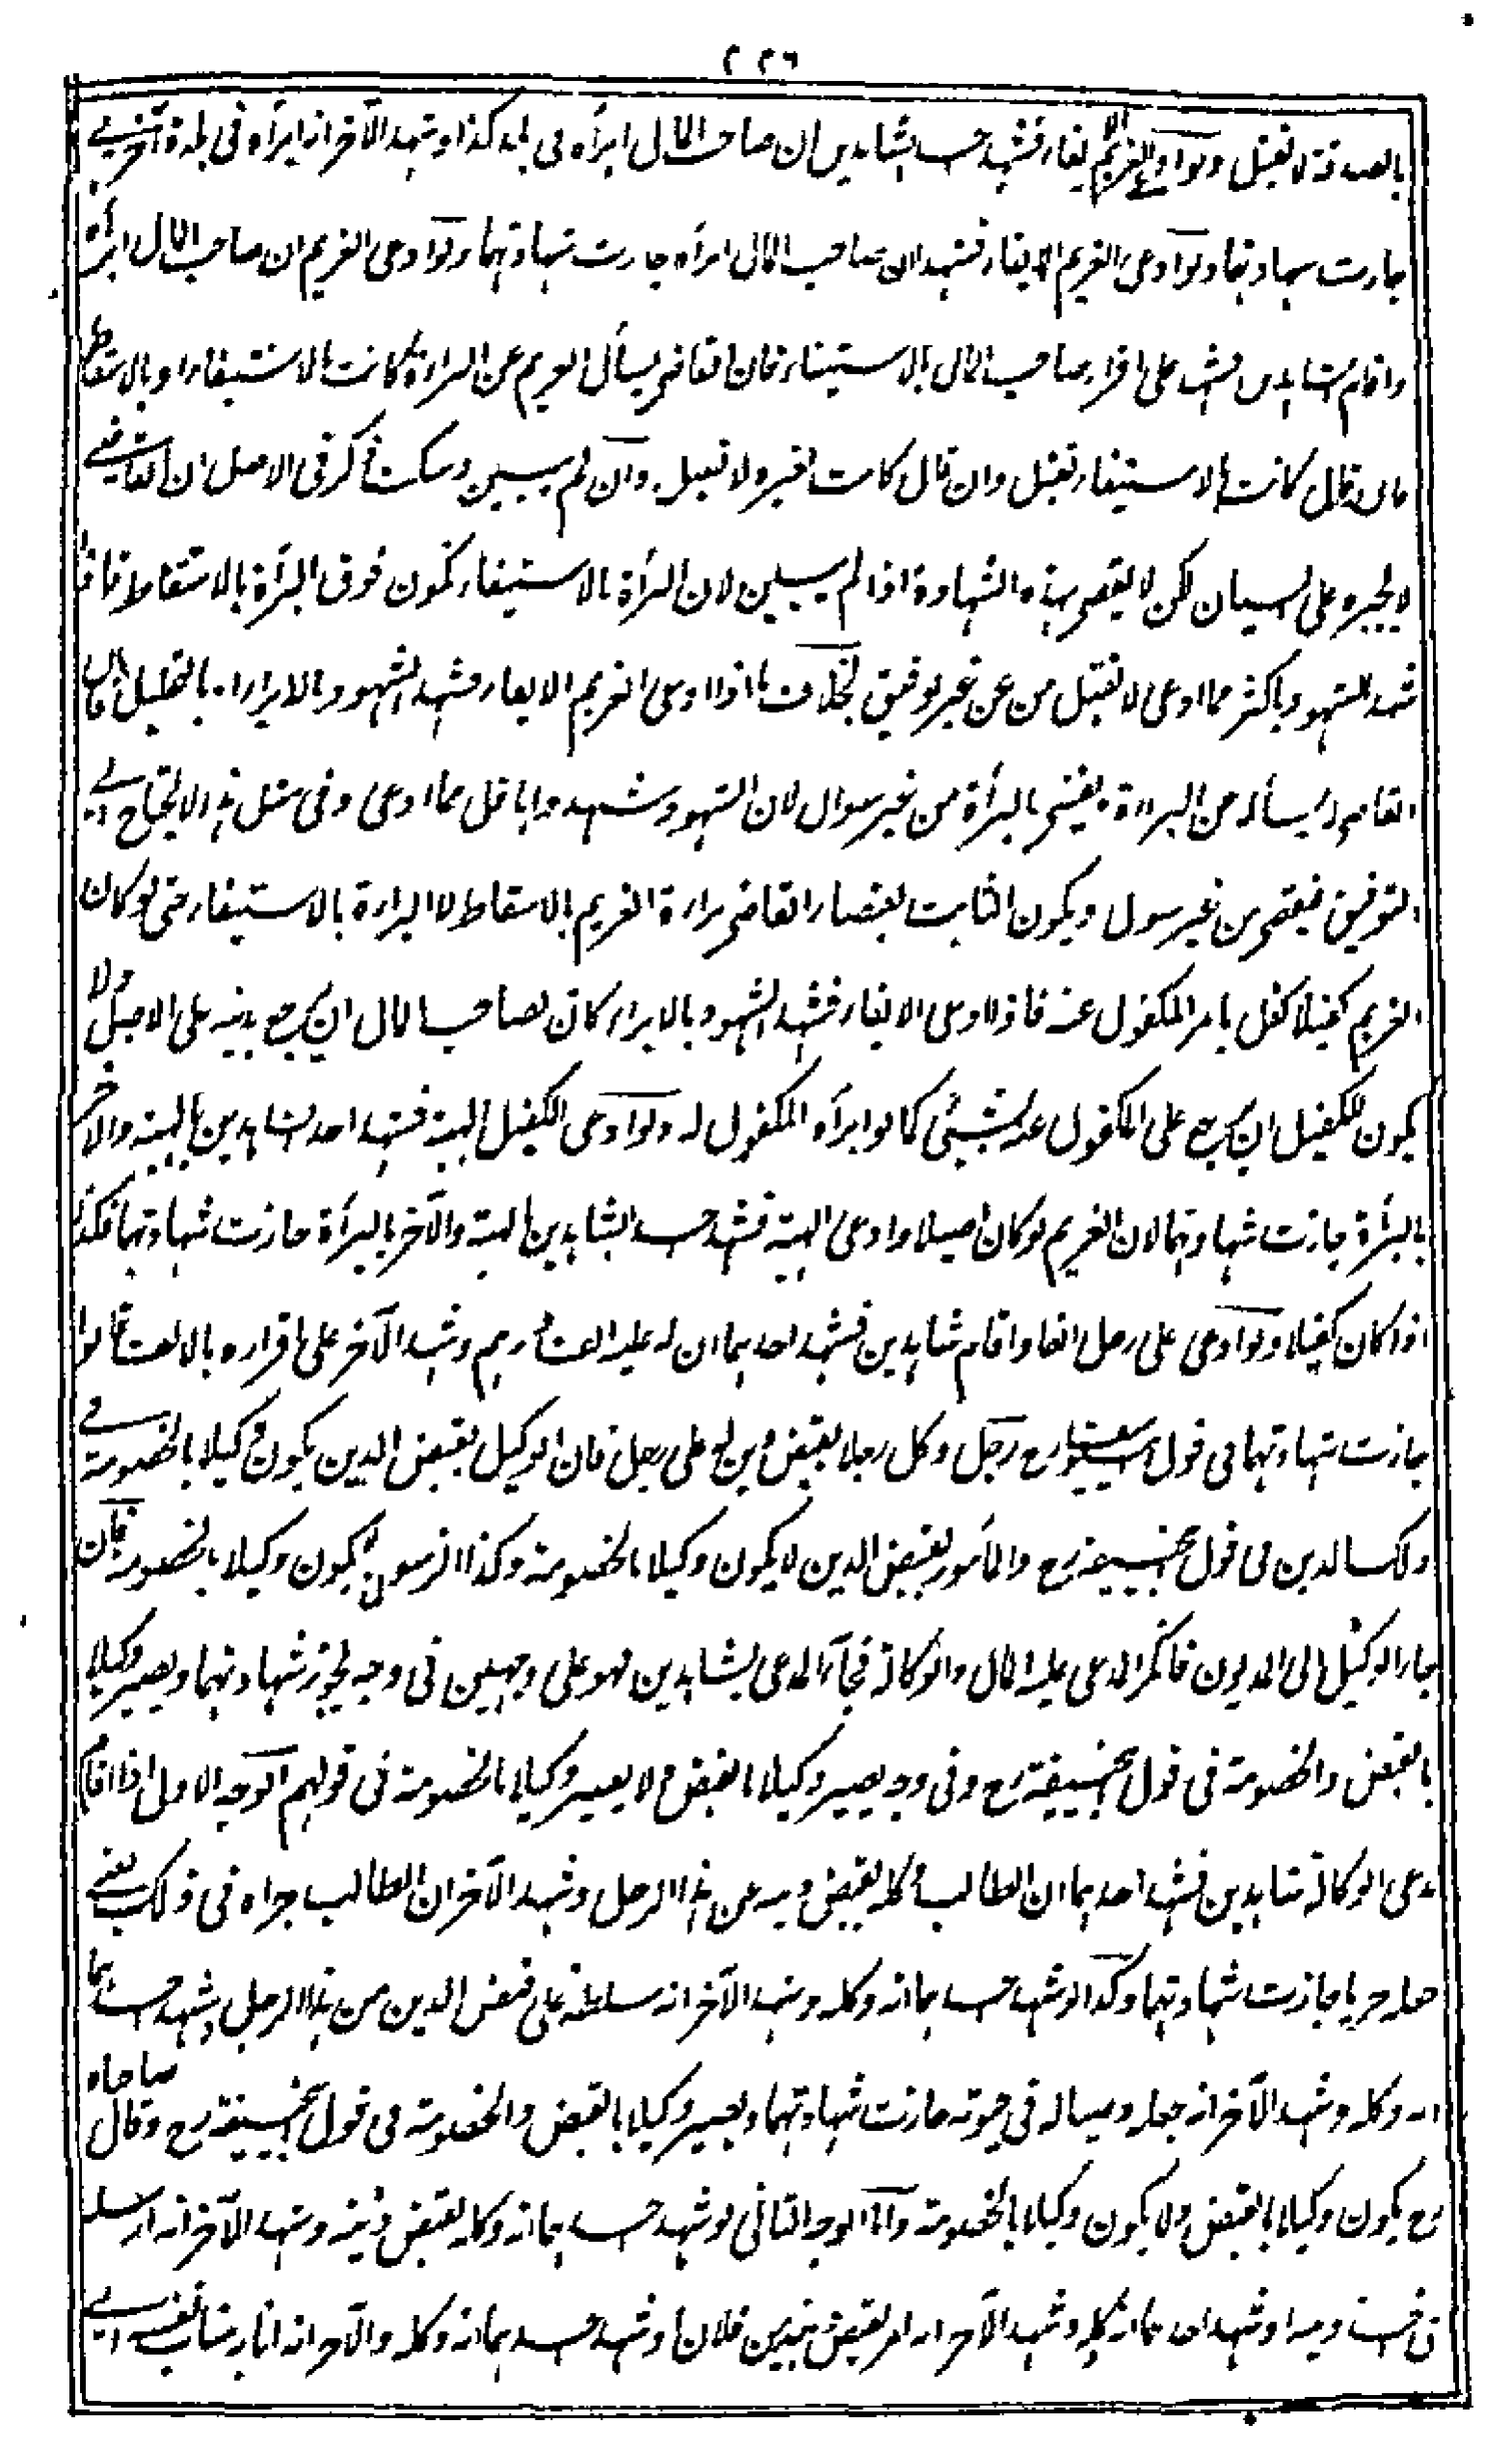 ٢٢٦
بالصدقة لا تقبل ولو ادعى الغريم الايفاء فشهد احد الشاهدين ان صاحب المال ابرأه فى بلد كذا وشهد الآخر انه ابرأه فى بلدة آخرى
جازت شهادتهما ولو ادعى الغريم الايفاء فشهدا ان صاحب المال ابرأه جازت شهادتهما ولو ادعى الغريم ان صاحب المال ابرأه
واقام شاهدين فشهدا على اقرار صاحب المال بالاستيفاء فان القاضى يسأل الغريم عن البراءة كانت بالاستيفاء او بالاسقاط
فان قال كانت بالاستيفاء تقبل وان قال كانت بغيره لا تقبل وان لم يبين وسكت ذكر فى الاصل ان القاضى
لا يجبره على البيان لكن لا يقضى بهذه الشهادة اذا لم يبين لان البرأة بالاستيفاء تكون فوق البرأة بالاسقاط فاذا
شهد الشهود باكثر مما ادعى لا تقبل من غير توفيق بخلاف ما اذا ادعى الغريم الايفاء فشهد الشهود بالابراء او بالتحليل فان
القاضى لا يسأله عن البراءة ويقضى بالبرأة من غير سوال لان الشهود شهدوا باقل مما ادعى وفى مثل هذا لا يحتاج الى
التوفيق فيقضى من غير سوال ويكون الثابت بقضاء القاضى براءة الغريم بالاسقاط لا البراءة بالاستيفاء حتى لو كان
الغريم كفيلا كفل بامر المكفول عنه فاذا ادعى الايفاء فشهد الشهود بالابراء كان لصاحب المال ان يرجع بدينه على الاصيل ولا
يكون للكفيل ان يرجع على المكفول عنه بشئ كما لو ابرأه المكفول له ولو ادعى الكفيل الهبة فشهد احد الشاهدين بالهبة والآخر
بالبرأة جازت شهادتهما لان الغريم لو كان اصيلا وادعى الهبة فشهد احد الشاهدين بالهبة والآخر بالبرأة جازت شهادتهما فكذا
اذا كان كفيلا ولو ادعى على رجل الفا واقام شاهدين فشهد احدهما ان له عليه الف درهم وشهد الآخر على اقراره بالالف قالوا
جازت شهادتهما فى قول ابى يوسف رح رجل وكل رجلا بقبض دين له على رجل فان الوكيل بقبض الدين يكون وكيلا بالخصومة فى
ذلك الدين فى قول ابى حنيفة رح والمأمور بقبض الدين لا يكون وكيلا بالخصومة وكذا الرسول لا يكون وكيلا بالخصومة فان
جاء الوكيل الى المديون فانكر المدعى عليه المال والوكالة فجاء المدعى بشاهدين فهو على وجهين فى وجه تجوز شهادتهما ويصير وكيلا
بالقبض والخصومة فى قول ابى حنيفة رح وفى وجه يصير وكيلا بالقبض ولا يصير وكيلا بالخصومة فى قولهم الوجه الاول اذا اقام
مدعى الوكالة شاهدين فشهد احدهما ان الطالب وكله بقبض دينه من هذا الرجل وشهد الآخر ان الطالب جراه فى ذلك يعنى
جعله جريا جازت شهادتهما وكذا لو شهد احدهما انه وكله وشهد الآخر انه سلطه على قبض الدين من هذا الرجل او شهد احدهما
انه وكله وشهد الآخر انه جعله وصيا له فى حيوته جازت شهادتهما ويصير وكيلا بالقبض والخصومة فى قول ابى حنيفة رح وقال صاحباه
رح يكون وكيلا بالقبض ولا يكون وكيلا بالخصومة واما الوجه الثانى لو شهد احدهما انه وكله بقبض دينه وشهد الآخر انه ارسله
فى اخذ دينه او شهد احدهما انه وكله وشهد الآخر انه امر بقبض دين فلان او شهد احدهما انه وكله والآخر انه انابه مناب نفسه فى